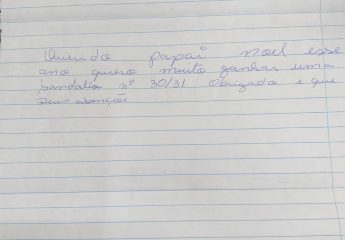 Querido papai noel esse
ano quero muito ganhar uma
sandalia nº 30/31 Obrigada e que
Deus abençoe.